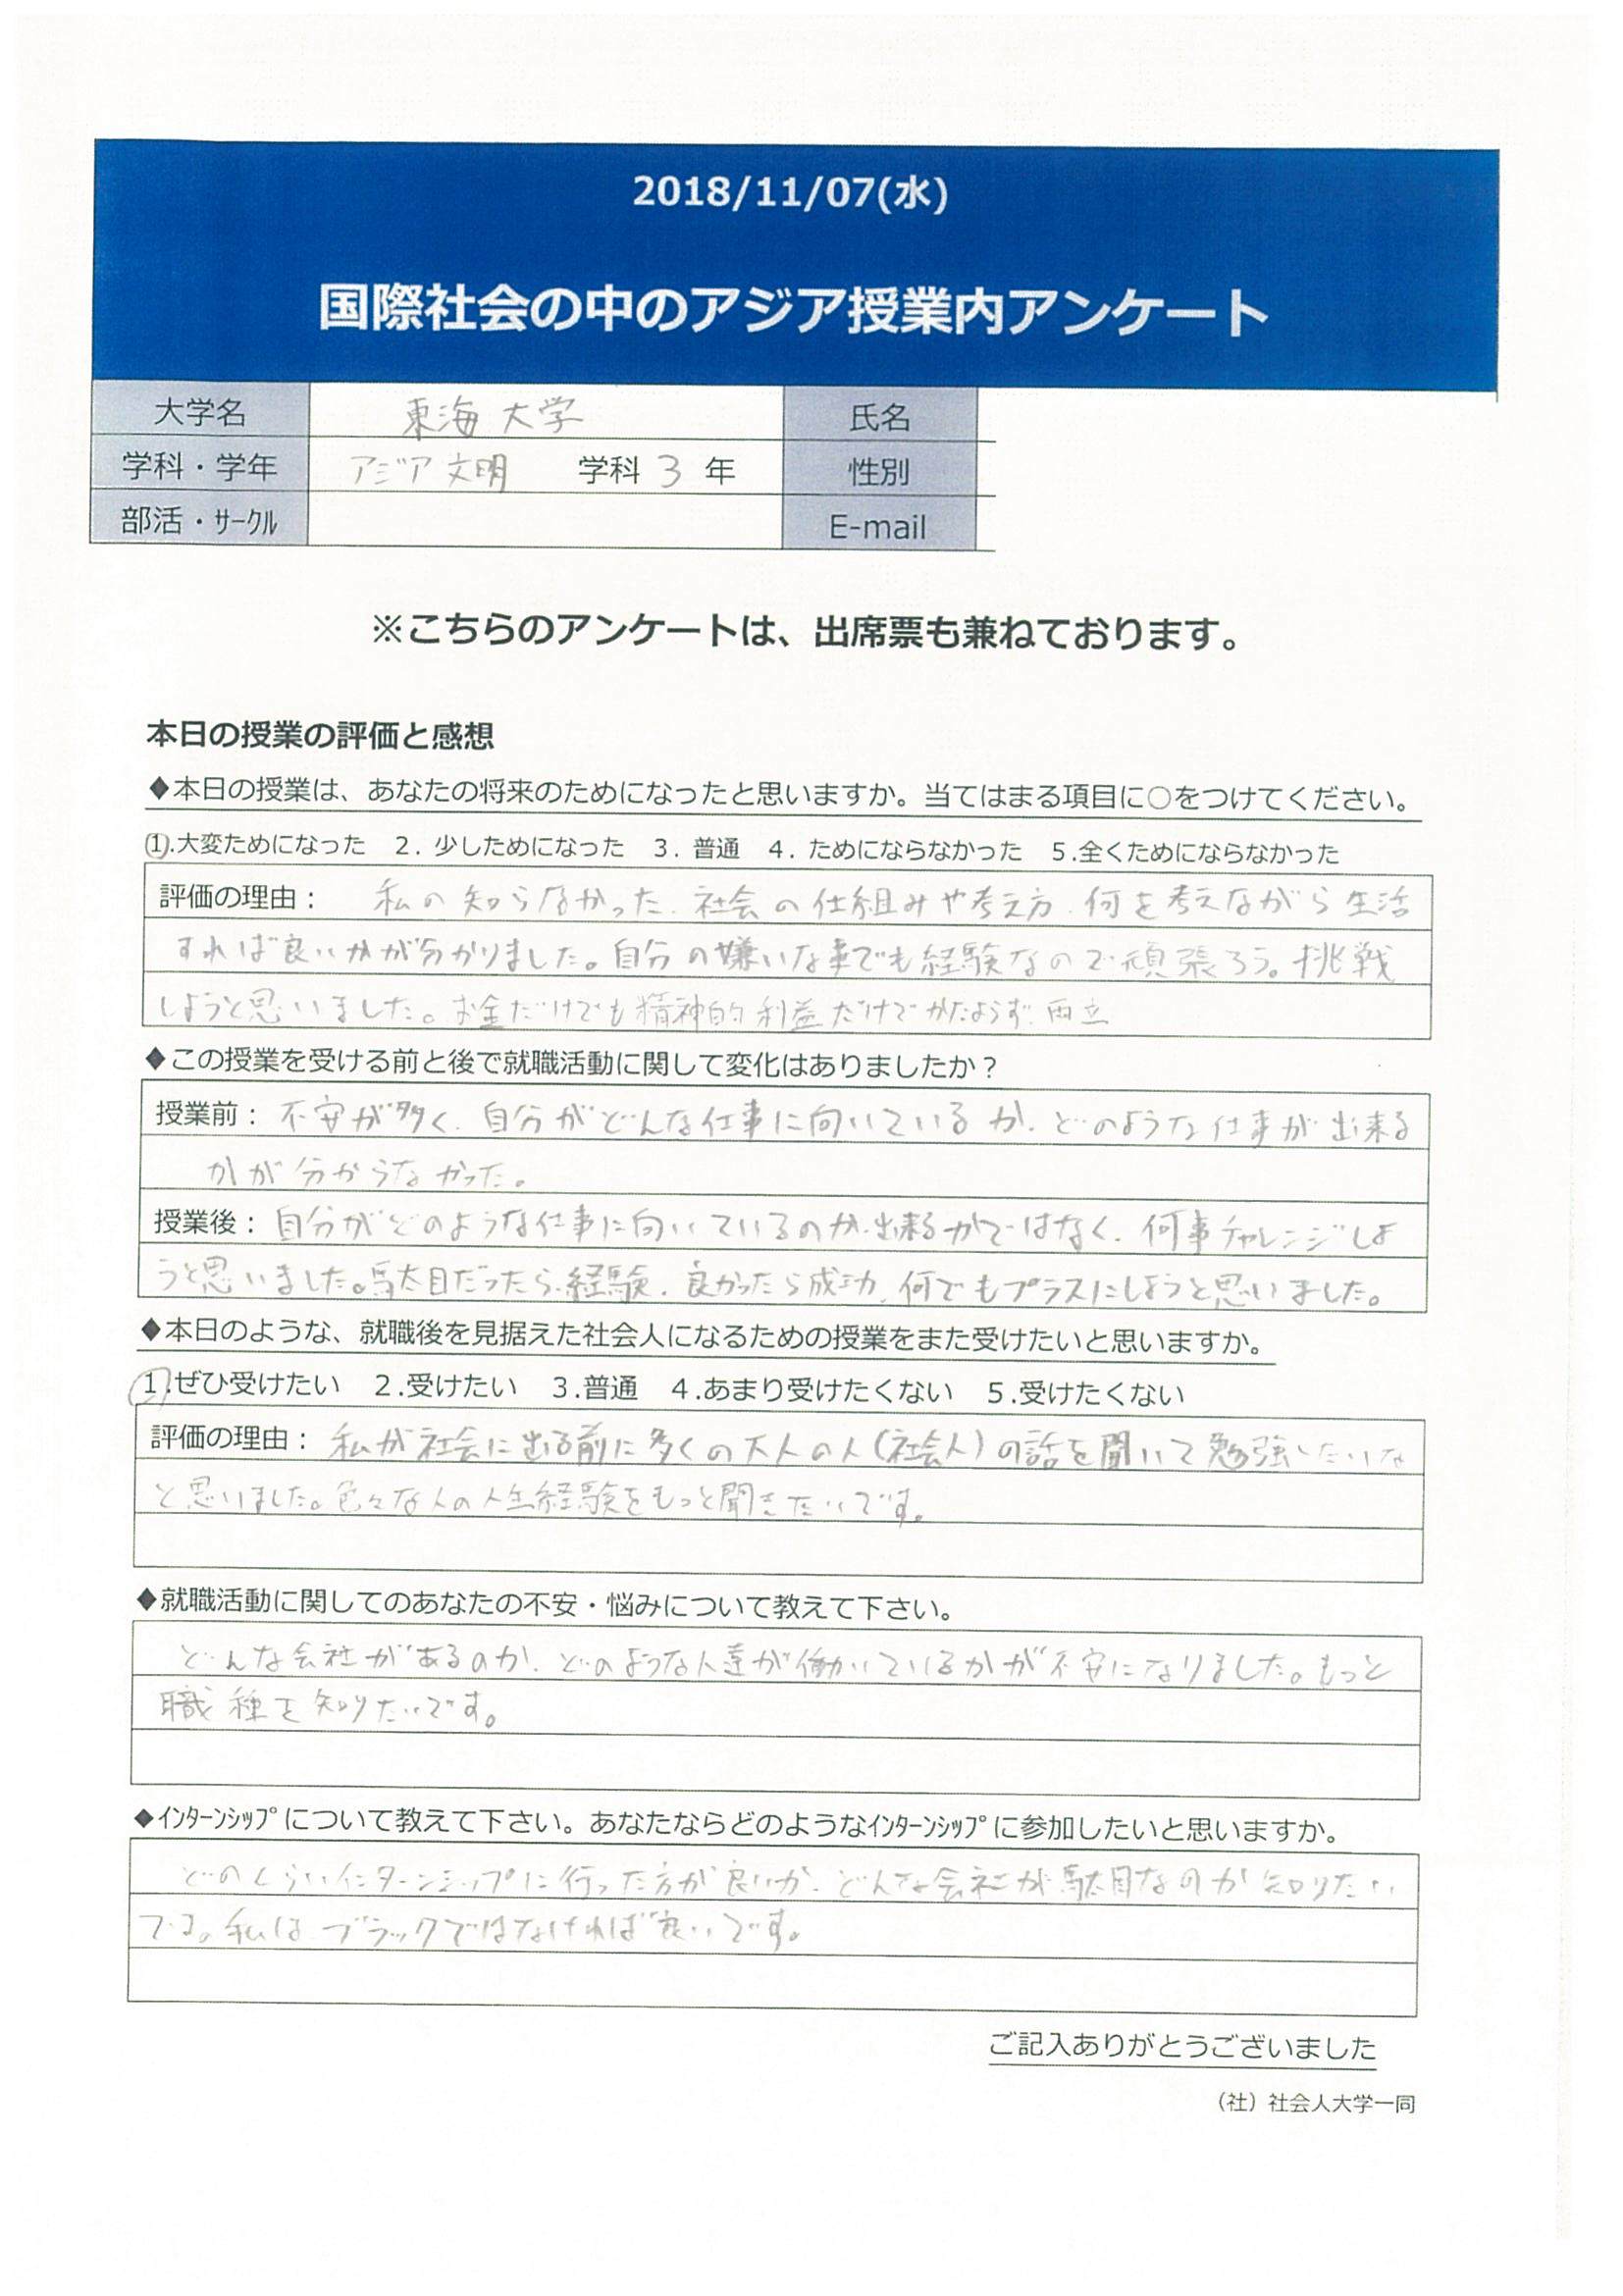 2018/11/07(水)
国際社会の中のアジア授業内アンケート
大学名 東海大学 氏名
学科・学年 アジア文明 学科 3 年 性別
部活・サークル E-mail
※こちらのアンケートは、出席票も兼ねております。
本日の授業の評価と感想
◆本日の授業は、あなたの将来のためになったと思いますか。当てはまる項目に○をつけてください。
1.大変ためになった 2. 少しためになった 3. 普通 4. ためにならなかった 5.全くためにならなかった
評価の理由： 私の知らなかった、社会の仕組みや考え方、何を考えながら生活
すれば良いかが分かりました。自分の嫌いな事でも経験なので頑張ろう。挑戦
しようと思いました。お金だけでも精神的利益だけでかたよらず、両立
◆この授業を受ける前と後で就職活動に関して変化はありましたか？
授業前： 不安が多く、自分がどんな仕事に向いているか、どのような仕事が出来る
かが分からなかった。
授業後： 自分がどのような仕事に向いているのか、出来るかではなく、何事チャレンジしよ
うと思いました。駄目だったら、経験、良かったら成功、何でもプラスにしようと思いました。
◆本日のような、就職後を見据えた社会人になるための授業をまた受けたいと思いますか。
1.ぜひ受けたい 2.受けたい 3.普通 4.あまり受けたくない 5.受けたくない
評価の理由： 私が社会に出る前に多くの大人の人(社会人)の話を聞いて勉強したいな
と思いました。色々な人の人生経験をもっと聞きたいです。
◆就職活動に関してのあなたの不安・悩みについて教えて下さい。
どんな会社があるのか、どのような人達が働いているかが不安になりました。もっと
職種を知りたいです。
◆インターンシップについて教えて下さい。あなたならどのようなインターンシップに参加したいと思いますか。
どのくらいインターンシップに行った方が良いか、どんな会社が駄目なのか知りたい
です。私は、ブラックではなければ良いです。
ご記入ありがとうございました
（社）社会人大学一同